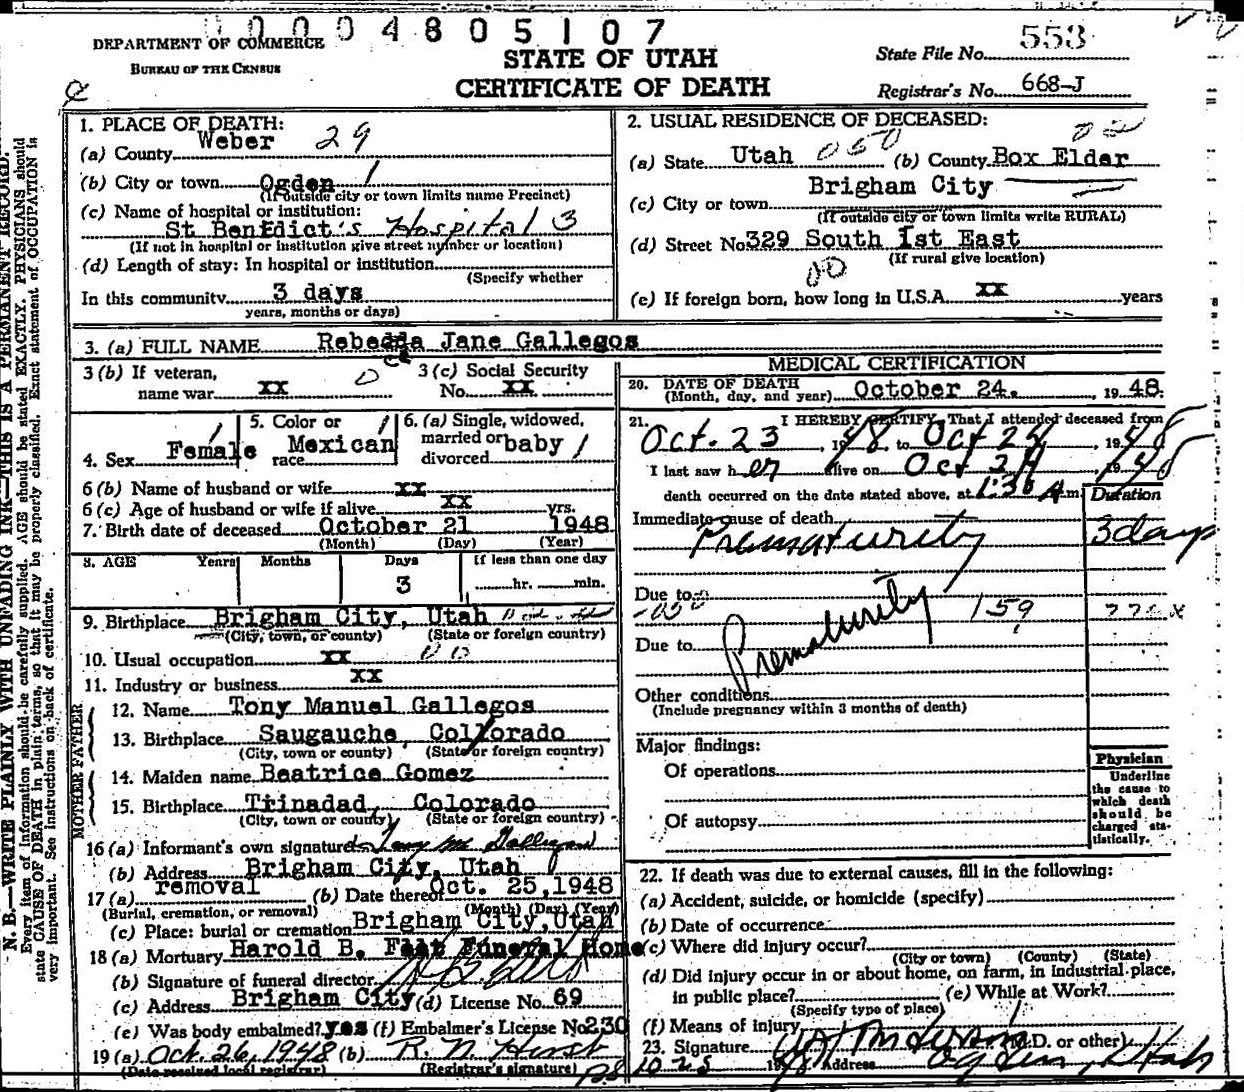 0004805107
DEPARTMENT OF COMMERCE
BUREAU OF THE CENSUS
STATE OF UTAH
CERTIFICATE OF DEATH
State File No. 553
Registrar's No. 668-J
1. PLACE OF DEATH:
(a) County Weber 29
(b) City or town Ogden 1
(If outside city or town limits name Precinct)
(c) Name of hospital or institution:
St Benedict's Hospital 3
(If not in hospital or institution give street number or location)
(d) Length of stay: In hospital or institution
(Specify whether
In this community 3 days
years, months or days)
2. USUAL RESIDENCE OF DECEASED:
(a) State Utah 050 (b) County Box Elder 02
(c) City or town Brigham City
(If outside city or town limits write RURAL)
(d) Street No 329 South 1st East
(If rural give location)
00
(e) If foreign born, how long in U.S.A. XX years
3. (a) FULL NAME Rebedda Jane Gallegos
cc
3 (b) If veteran,
name war XX 0
3 (c) Social Security
No. XX
4. Sex Female 1
5. Color or
race Mexican 1
6. (a) Single, widowed,
married or
divorced baby 1
6 (b) Name of husband or wife XX
6 (c) Age of husband or wife if alive XX yrs.
7. Birth date of deceased October 21 1948
(Month) (Day) (Year)
8. AGE Years Months Days If less than one day
3 hr. min.
9. Birthplace Brigham City, Utah
(City, town, or county) (State or foreign country)
10. Usual occupation XX
11. Industry or business XX
FATHER
12. Name Tony Manuel Gallegos
13. Birthplace Saugauche, Collorado
(City, town or county) (State or foreign country)
MOTHER
14. Maiden name Beatrice Gomez
15. Birthplace Trinadad, Colorado
(City, town or county) (State or foreign country)
16 (a) Informant's own signature Tony M
(b) Address Brigham City, Utah
17 (a) removal (b) Date thereof Oct. 25, 1948
(Burial, cremation, or removal) (Month) (Day) (Year)
(c) Place: burial or cremation Brigham City, Utah
18 (a) Mortuary Harold B. Felt Funeral Home
(b) Signature of funeral director
(c) Address Brigham City (d) License No. 69
(e) Was body embalmed? yes (f) Embalmer's License No 230
19 (a) Oct. 26, 1948 (b) R. N. Hirst
(Date received local registrar) (Registrar's signature)
MEDICAL CERTIFICATION
20. DATE OF DEATH
(Month, day, and year) October 24. 1948.
21. I HEREBY CERTIFY, That I attended deceased from
Oct. 23, 1948 to Oct 24, 1948
I last saw her alive on Oct 24 1948
death occurred on the date stated above, at 1:30 A.m.
Duration
Immediate cause of death
Prematurity 3 days
Due to
Prematurity 159
Due to
Other conditions
(Include pregnancy within 3 months of death)
Major findings:
Of operations
Of autopsy
Physician
Underline
the cause to
which death
should be
charged sta-
tistically.
22. If death was due to external causes, fill in the following:
(a) Accident, suicide, or homicide (specify)
(b) Date of occurrence
(c) Where did injury occur?
(City or town) (County) (State)
(d) Did injury occur in or about home, on farm, in industrial place,
in public place? (e) While at Work?
(Specify type of place)
(f) Means of injury
23. Signature (M.D. or other)
10 25 1948 Address Ogden, Utah
N. B.—WRITE PLAINLY WITH UNFADING INK—THIS IS A PERMANENT RECORD.
Every item of information should be carefully supplied. AGE should be stated EXACTLY. PHYSICIANS should
state CAUSE OF DEATH in plain terms, so that it may be properly classified. Exact statement of OCCUPATION is
very important. See instructions on back of certificate.